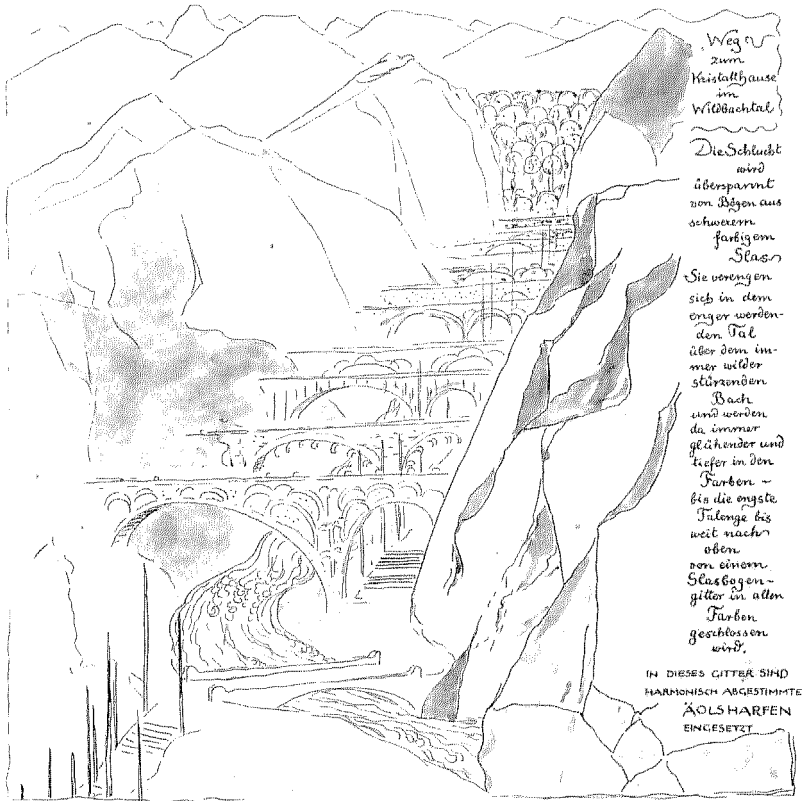 Weg
zum
Kristallhause
im
Wildbachtal
Die Schlucht
wird
überspannt
von Bögen aus
schwerem
farbigem
Glas
Sie verengen
sich in dem
enger werden-
den Tal
über dem im-
mer wilder
stürzenden
Bach
und werden
da immer
glühender und
tiefer in den
Farben –
bis die engste
Talenge bis
weit nach
oben
von einem
Glasbogen-
gitter in allen
Farben
geschlossen
wird.
IN DIESES GITTER SIND
HARMONISCH ABGESTIMMTE
ÄOLSHARFEN
EINGESETZT